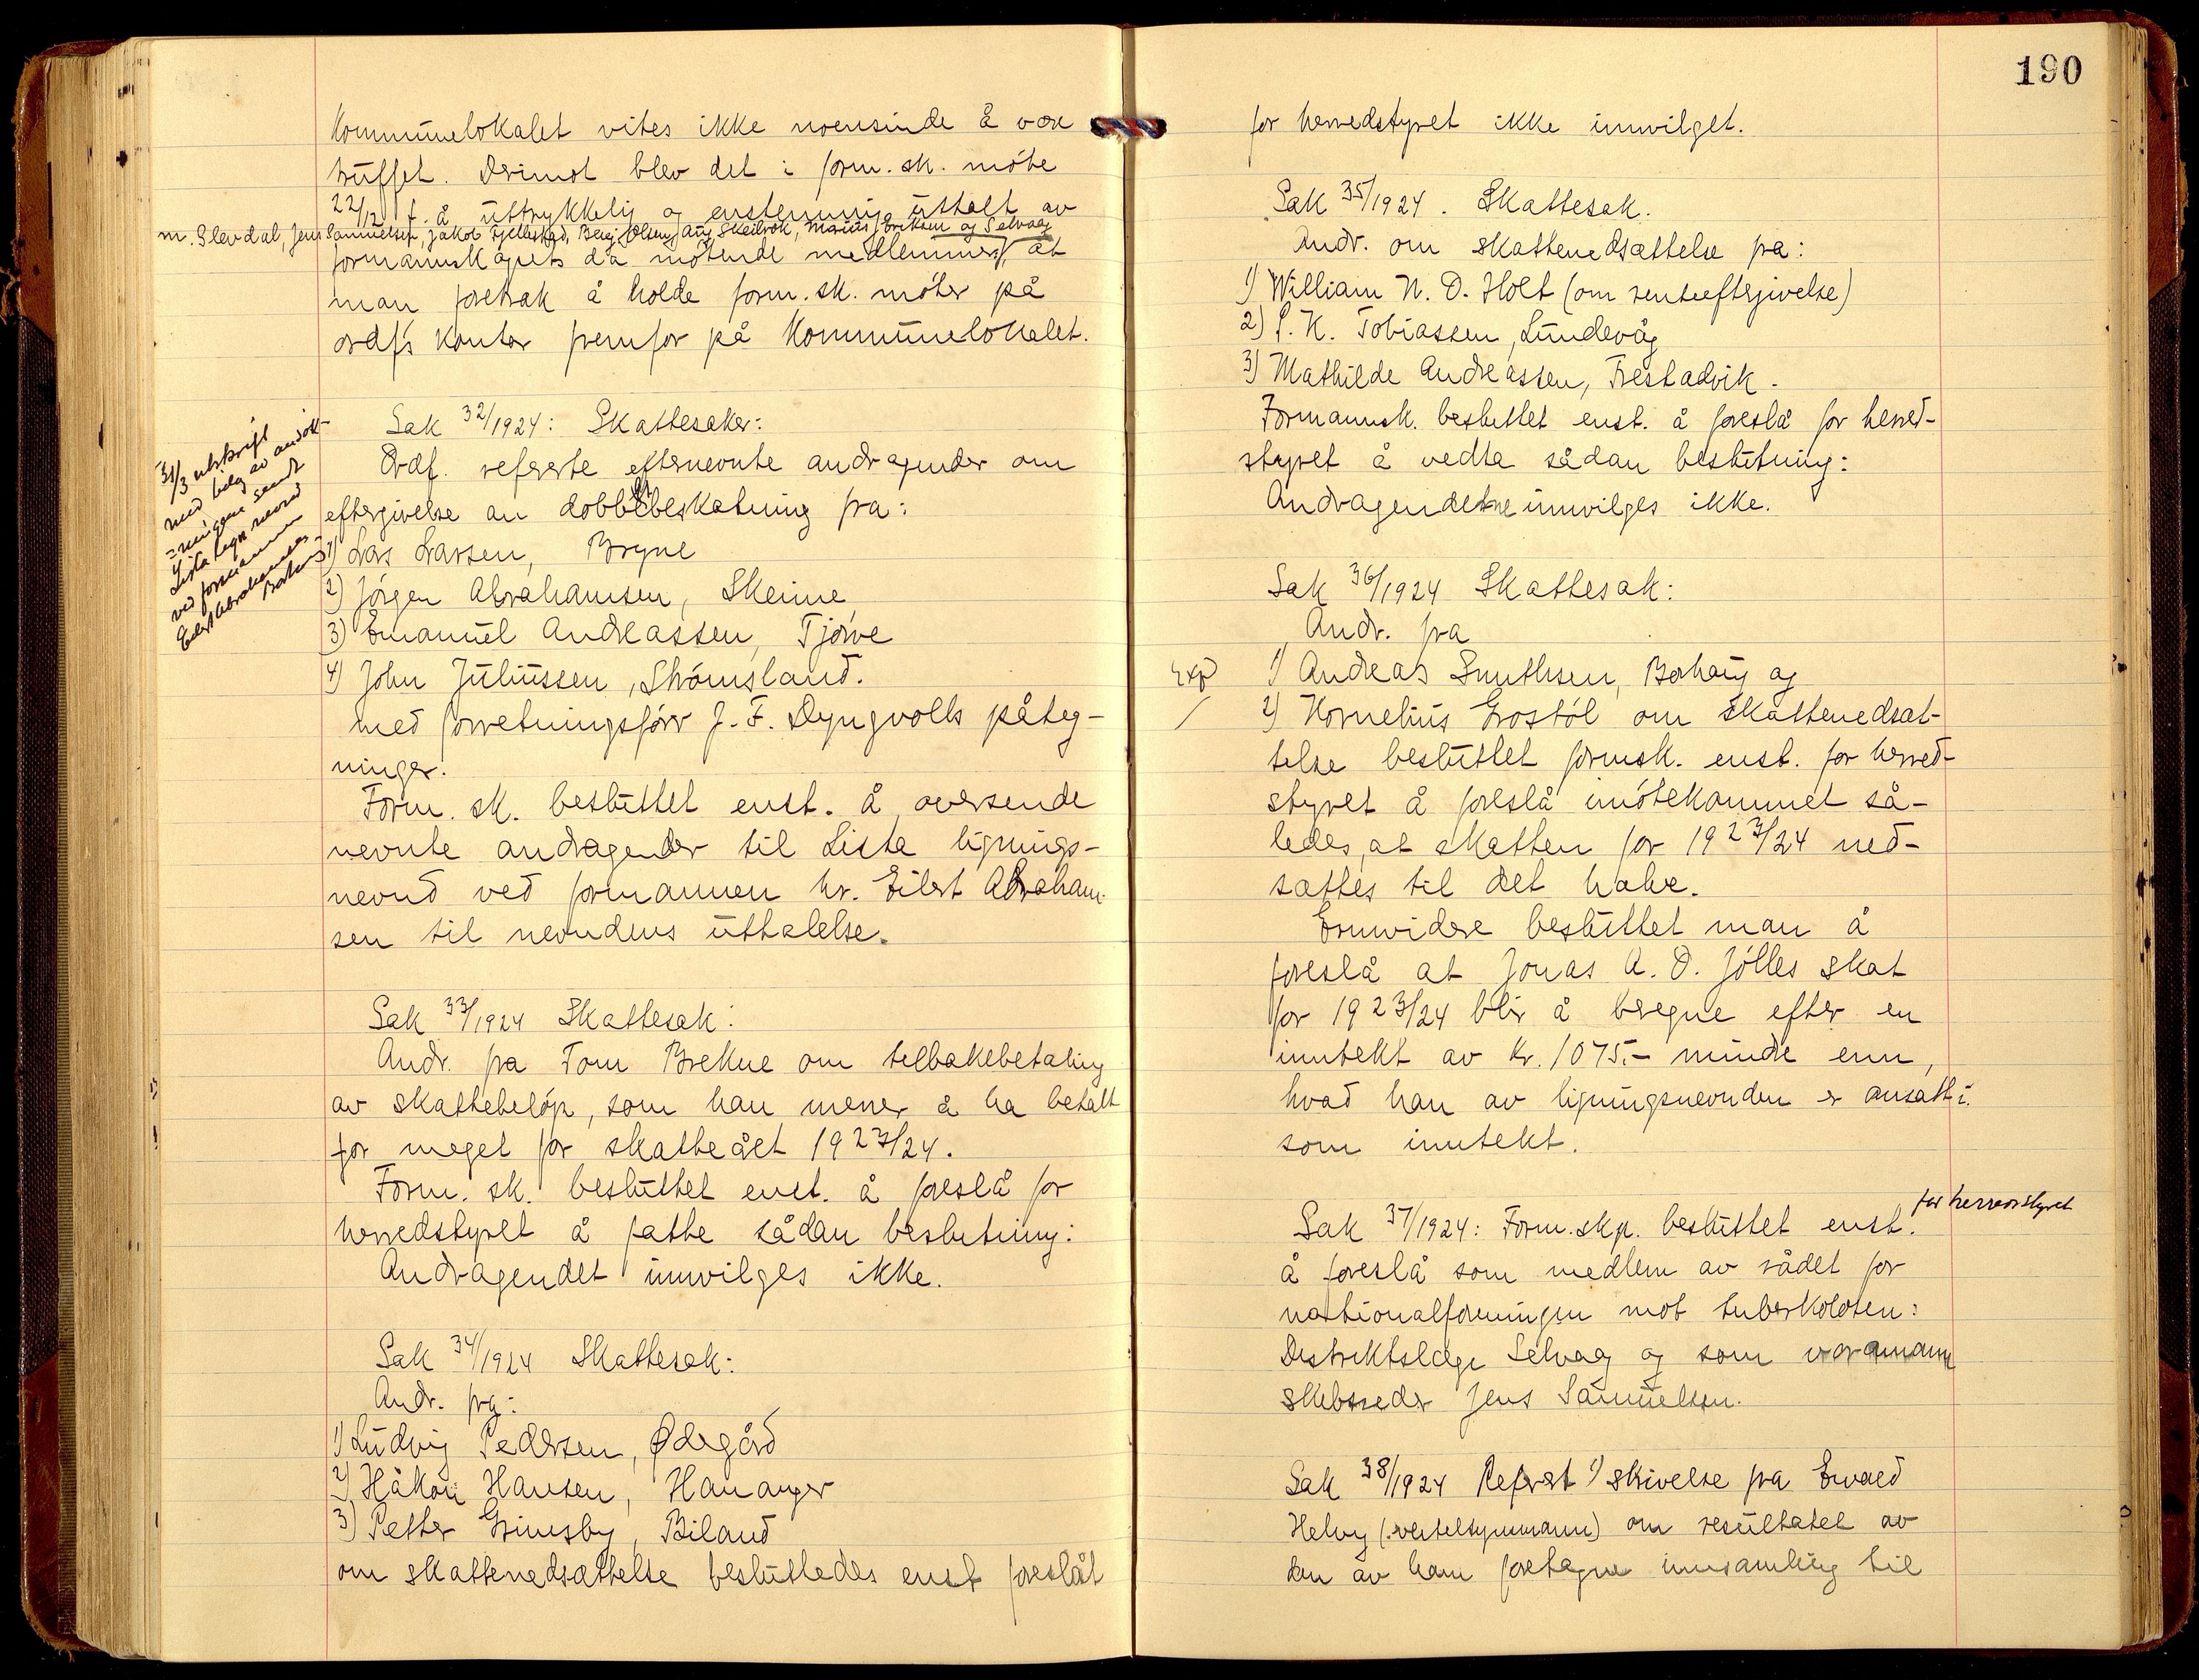 Kommunelokalet vites ikke noensinde å være
truffet. Derimot blev det i form.sk. møte
22/12 f. å uttrykkelig og enstemmig uttalt av
m. Elevdal, Jens Samuelsen, Jakob Fjellestad, Berg. Olsen, Aug Skeibrok, Marius Eriksen og Selvaag
formannskapets da møtende medlemmer, at
man foretrak å holde form.sk. møter på
ordf's kontor fremfor på Kommunelokalet.
Sak 32/1924: Skattesaker:
Ordf. refererte efternevnte andragender om
eftergivelse an dobbeltbeskatning fra:
31/3 utskrift
med bilag av ansøk-
=ningene sendt
Lista lign nevnd
ved formannen
Eilert Abrahamsen
Borhaug
1) Lars Larsen, Bryne
2) Jørgen Abrahamsen, Skeime
3) Emanuel Andreassen, Tjørve
4) John Juliussen, Strømsland.
med forretningsfører J. F. Dyngvolls påteg-
ninger.
Form. sk. besluttet enst. å oversende
nevnte andragender til Lista lignings-
nevnd ved formannen hr. Eilert Abraham-
sen til nevndens uttalelse.
Sak 33/1924 Skattesak:
Andr. fra Tom Brekne om tilbakebetaling
av skattebeløp, som han mener å ha betalt
for meget for skatteåret 1923/24.
Form. sk. besluttet enst. å foreslå for
herredstyret å fatte sådan beslutning:
Andragendet innvilges ikke.
Sak 34/1924 Skattesak:
Andr. fra:
1) Ludvig Pedersen, Ødegård
2) Håkon Hansen, Hananger
3) Petter Grimsby, Biland
om skattenedsættelse besluttedes enst foreslåt
190
for herredstyret ikke innvilget.
Sak 35/1924. Skattesak.
Andr. om skattenedsættelse fra:
1) William N. D. Holt (om renteeftergivelse)
2) P. K. Tobiassen, Lundevåg
3) Mathilde Andreassen, Frestadvik.
Formannsk. besluttet enst. å foreslå for herred-
styret å vedta sådan beslutning:
Andragendene innvilges ikke.
Sak 36/1924 Skattesak:
Andr. fra
Exp
1) Andreas Smithsen, Borhaug og
2) Kornelius Grostøl om skattenedsæt-
telse besluttet formsk. enst. for herred-
styret å foreslå imøtekommet så-
ledes, at skatten for 1923/24 ned-
sættes til det halve.
Ennvidere besluttet man å
foreslå at Jonas A. D. Jølles skat
for 1923/24 blir å beregne efter en
inntekt av kr. 1075.- mindre enn,
hvad han av ligningsnevnden er ansatt i.
som inntekt.
Sak 37/1924: Form.skp. besluttet enst. for herredstyret
å foreslå som medlem av rådet for
nationalforeningen mot tuberkolosen:
Distriktslæge Selvaag og som varamann
skibsreder Jens Samuelsen.
Sak 38/1924 Referert 1) skrivelse fra Envald
Helvig om resultatet av
den av ham foretagne innsamling til